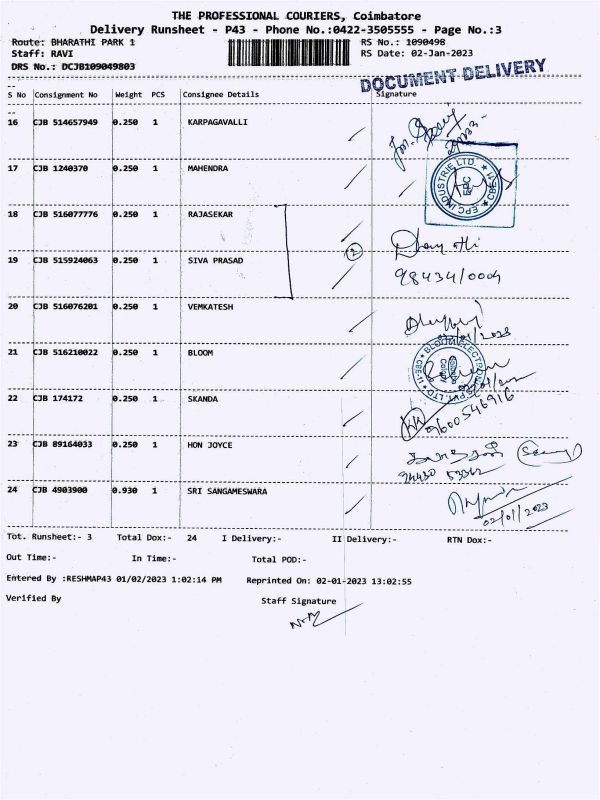 THE PROFESSIONAL COURIERS, Coimbatore
Delivery Runsheet - P43 - Phone No.:0422-3505555 - Page No.:3
Route: BHARATHI PARK 1 RS No.: 1090498
Staff: RAVI RS Date: 02-Jan-2023
DRS No.: DCJB109049803
DOCUMENT DELIVERY
S No Consignment No Weight PCS Consignee Details Signature
16 CJB 514657949 0.250 1 KARPAGAVALLI
17 CJB 1240370 0.250 1 MAHENDRA
EPC INDUSTRIE LTD. EPC
18 CJB 516077776 0.250 1 RAJASEKAR
2
19 CJB 515924063 0.250 1 SIVA PRASAD
98434/0004
20 CJB 516076201 0.250 1 VEMKATESH
21 CJB 516210022 0.250 1 BLOOM
22 CJB 174172 0.250 1 SKANDA
9600546916
23 CJB 89164033 0.250 1 HON JOYCE
24 CJB 4903900 0.930 1 SRI SANGAMESWARA
02/01/2023
Tot. Runsheet:- 3 Total Dox:- 24 I Delivery:- II Delivery:- RTN Dox:-
Out Time:- In Time:- Total POD:-
Entered By :RESHMAP43 01/02/2023 1:02:14 PM Reprinted On: 02-01-2023 13:02:55
Verified By Staff Signature